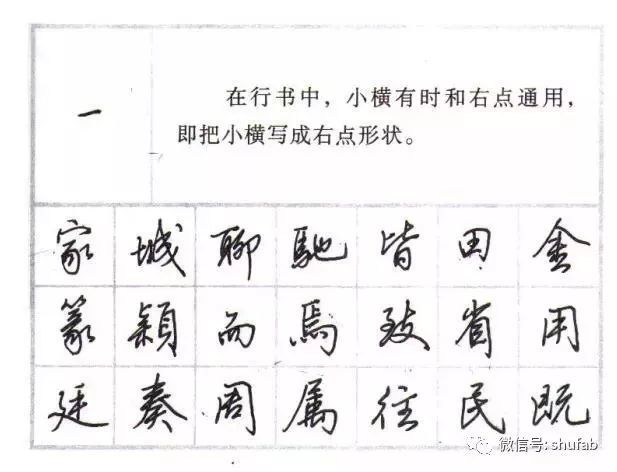 一
在行书中，小横有时和右点通用，
即把小横写成右点形状。
家 城 聊 馳 皆 田 金
篆 穎 而 焉 致 省 用
廷 奏 周 属 往 民 既
微信号: shufab